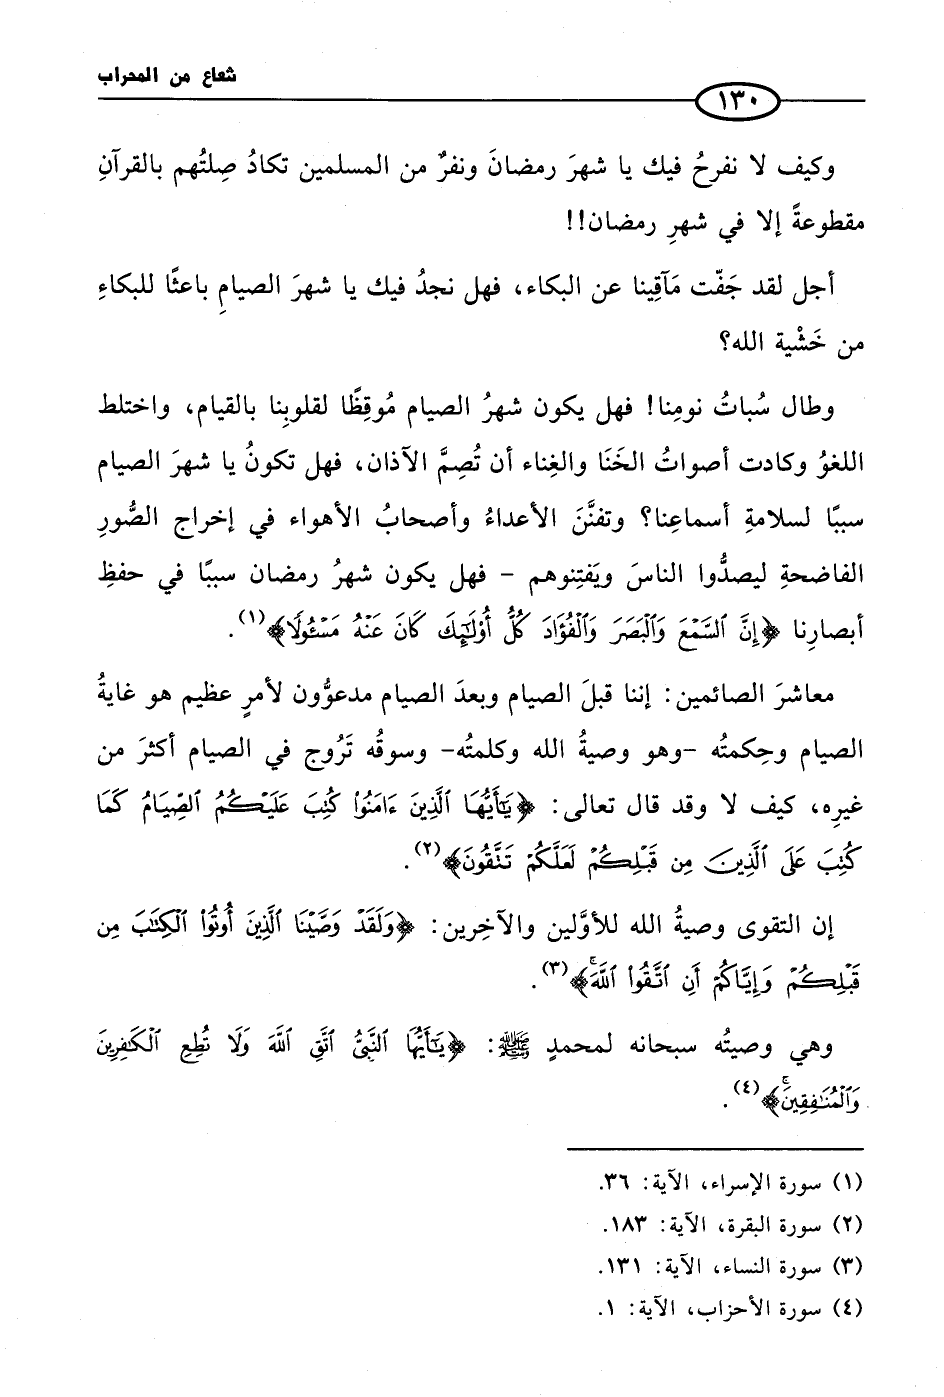 شعاع من المحراب
١٣٠
وكيف لا نفرحُ فيك يا شهرَ رمضانَ ونفرٌ من المسلمين تكادُ صِلتُهم بالقرآنِ
مقطوعةً إلا في شهرِ رمضان!!
أجل لقد جَفّت مَآقِينا عن البكاء، فهل نجدُ فيك يا شهرَ الصيامِ باعثًا للبكاءِ
من خَشْية الله؟
وطال سُباتُ نومِنا! فهل يكون شهرُ الصيام مُوقِظًا لقلوبِنا بالقيام، واختلط
اللغوُ وكادت أصواتُ الخَنَا والغِناء أن تُصِمَّ الآذان، فهل تكونُ يا شهرَ الصيام
سببًا لسلامةِ أسماعِنا؟ وتفنَّنَ الأعداءُ وأصحابُ الأهواء في إخراج الصُّورِ
الفاضحةِ ليصدُّوا الناسَ ويَفتِنوهم - فهل يكون شهرُ رمضان سببًا في حفظِ
أبصارِنا ﴿إِنَّ ٱلسَّمْعَ وَٱلْبَصَرَ وَٱلْفُؤَادَ كُلُّ أُوْلَٰٓئِكَ كَانَ عَنْهُ مَسْـُٔولًا﴾(١).
معاشرَ الصائمين: إننا قبلَ الصيام وبعدَ الصيام مدعوُّون لأمرٍ عظيم هو غايةُ
الصيام وحِكمتُه -وهو وصيةُ الله وكلمتُه- وسوقُه تَرُوج في الصيام أكثرَ من
غيرِه، كيف لا وقد قال تعالى: ﴿يَٰٓأَيُّهَا ٱلَّذِينَ ءَامَنُوا۟ كُتِبَ عَلَيْكُمُ ٱلصِّيَامُ كَمَا
كُتِبَ عَلَى ٱلَّذِينَ مِن قَبْلِكُمْ لَعَلَّكُمْ تَتَّقُونَ﴾(٢).
إن التقوى وصيةُ الله للأوَّلين والآخِرين: ﴿وَلَقَدْ وَصَّيْنَا ٱلَّذِينَ أُوتُوا۟ ٱلْكِتَٰبَ مِن
قَبْلِكُمْ وَإِيَّاكُمْ أَنِ ٱتَّقُوا۟ ٱللَّهَ ۚ﴾(٣).
وهي وصيتُه سبحانه لمحمدٍ ﷺ: ﴿يَٰٓأَيُّهَا ٱلنَّبِىُّ ٱتَّقِ ٱللَّهَ وَلَا تُطِعِ ٱلْكَٰفِرِينَ
وَٱلْمُنَٰفِقِينَ ۚ﴾(٤).
(١) سورة الإسراء، الآية: ٣٦.
(٢) سورة البقرة، الآية: ١٨٣.
(٣) سورة النساء، الآية: ١٣١.
(٤) سورة الأحزاب، الآية: ١.